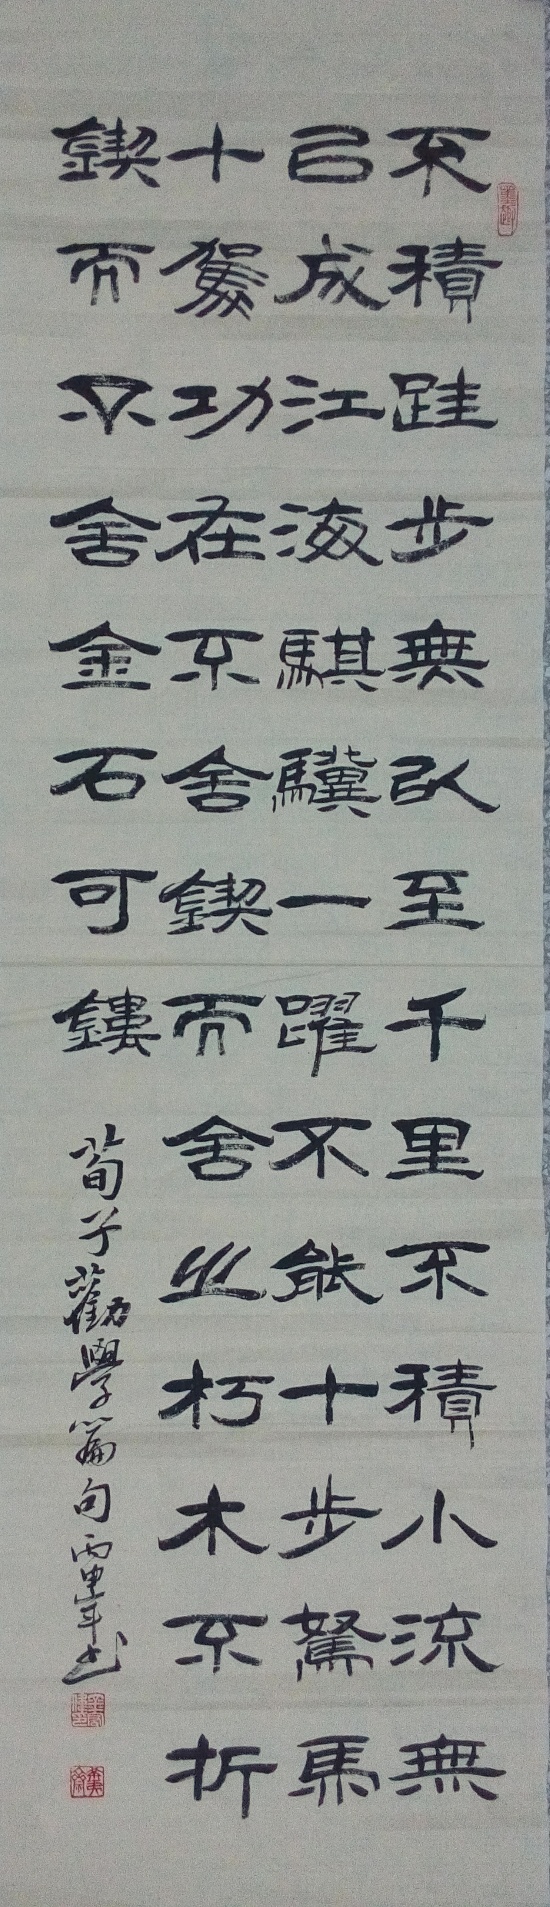 不積跬步無以至千里不積小流無
以成江海騏驥一躍不能十步駑馬
十駕功在不舍鍥而舍之朽木不折
鍥而不舍金石可鏤
荀子勸學篇句丙申年書